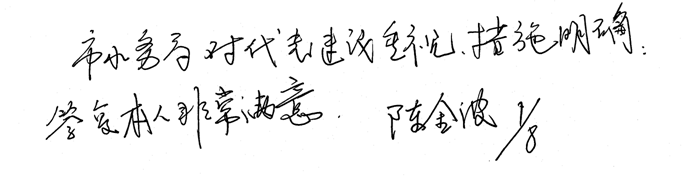 市水务局对代表建议重视、措施明确;
答复本人非常满意. 陈金波 1/8